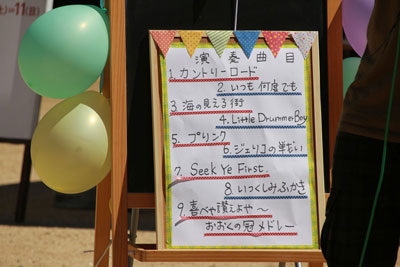 土)〜11(日)
演奏曲目
1. カントリーロード
2. いつも何度でも
3 海の見える街
4. Little Drummer Boy
5. プリンク
6. ジェリコの戦い
7. Seek Ye First
8. いつくしみふかき
9. 喜べや讃えよや〜
おおくの冠 メドレー